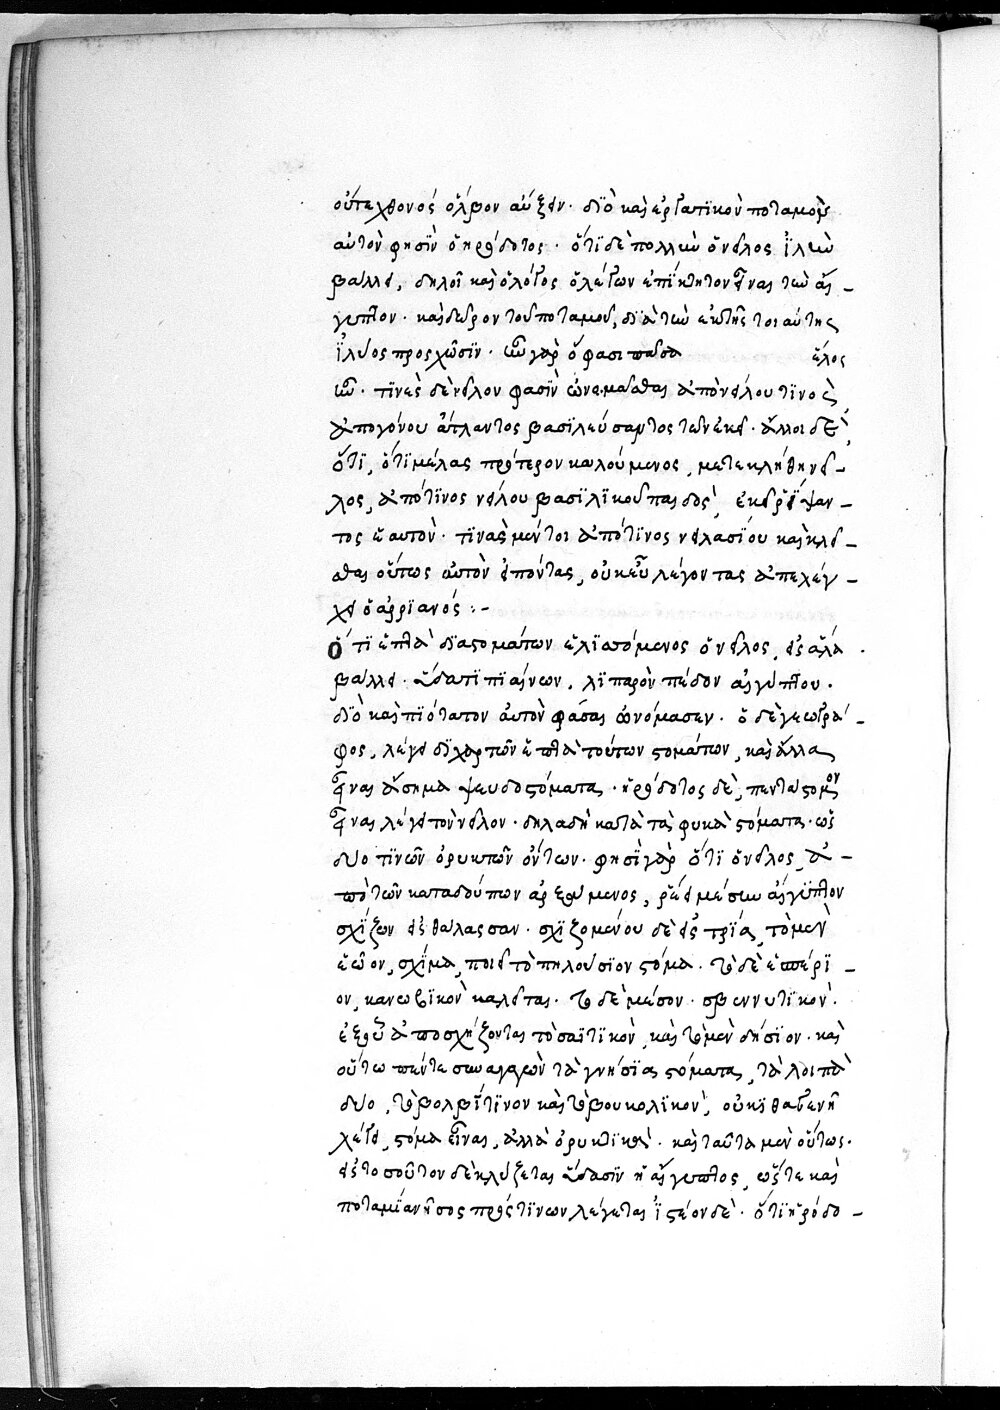 οὔτε χθονὸς ὄλβον αὔξειν. διὸ καὶ ἐργατικὸν ποταμὸν
αὐτὸν φησὶν ὁ ἡρόδοτος. ὅτι δὲ πολλὴν ὁ νεῖλος ἰλὺν
βάλλει, δηλοῖ καὶ ὁ λόγος ὁ λέγων ἐπίκτητον εἶναι τὴν αἴ-
γυπτον. καὶ δῶρον τοῦ ποταμοῦ, διὰ τὴν ἐκ τῆς τοιαύτης
ἰλύος πρόσχωσιν. ἦν γὰρ ὥς φασι πᾶσα ἕλος
ἦν. τινὲς δὲ νεῖλον φασὶν ὠνομάσθαι ἀπὸ νείλου τινὸς
ἀπογόνου ἄτλαντος βασιλεύσαντος τῶν ἐκεῖ. ἄλλοι δὲ
ὅτι, ὅτι μέλας πρότερον καλούμενος, μετεκλήθη νεῖ-
λος, ἀπό τινος νείλου βασιλικοῦ παιδὸς, ἐκεῖ ῥίψαν-
τος ἑαυτὸν. τινὰς μέντοι ἀπό τινος νειλασίου κακλεῖ-
σθαι οὕτως αὐτὸν εἰπόντας, οὐκ εὖ λέγοντας ἀπελέγ-
χει ὁ ἀρριανός :-
Ὅτι ἑπτὰ διὰ στομάτων ἑλισσόμενος ὁ νεῖλος, εἰς ἅλα
βάλλει. ὕδατι πιαίνων, λιπαρὸν πέδον αἰγύπτου.
διὸ καὶ πιότατον αὐτὸν φάσαι ὠνόμασεν. ὁ δὲ γεωγρά-
φος, λέγει δίχα τῶν ἑπτὰ τούτων στομάτων, καὶ ἄλλα
εἶναι ἄσημα ψευδοστόματα. ἡρόδοτος δὲ, πεντάστομον
εἶναι λέγει τὸν νεῖλον. δηλαδὴ κατὰ τὰ φυκὰ στόματα. ὡς
δύο τινῶν ὀρυκτῶν ὄντων. φησὶ γὰρ ὅτι ὁ νεῖλος, ἀ-
πὸ τῶν καταδούπων ἀρξάμενος, ῥέει μέσην αἴγυπτον
σχίζων εἰς θάλασσαν. σχιζομένου δὲ εἰς τρία, τὸ μὲν
ἑῶον, σχίμα, ποιεῖ τὸ πηλούσιον στόμα. τὸ δὲ ἑσπέρι-
ον, κανωβικὸν καλεῖται. τὸ δὲ μέσον. σβεννυτικὸν.
ἐξ οὗ ἀποσχίζονται τὸ σαϊτικὸν, καὶ τὸ μενδήσιον. καὶ
οὕτω πέντε συναγαγὼν τὰ γνήσια στόματα, τὰ λοιπὰ
δύο, τὸ βολβίτινον καὶ τὸ βουκολικὸν, οὐκ ἰθαγενῆ
λέγει, στόμα εἶναι, ἀλλὰ ὀρυκτικὰ. καὶ ταῦτα μὲν οὕτως.
εἰς τοσοῦτον δὲ κλύζεται ὕδασιν ἡ αἴγυπτος, ὥστε καὶ
ποταμία νῆσος πρός τινων λέγεται ἰστέον δὲ. ὅτι ἡρόδο-